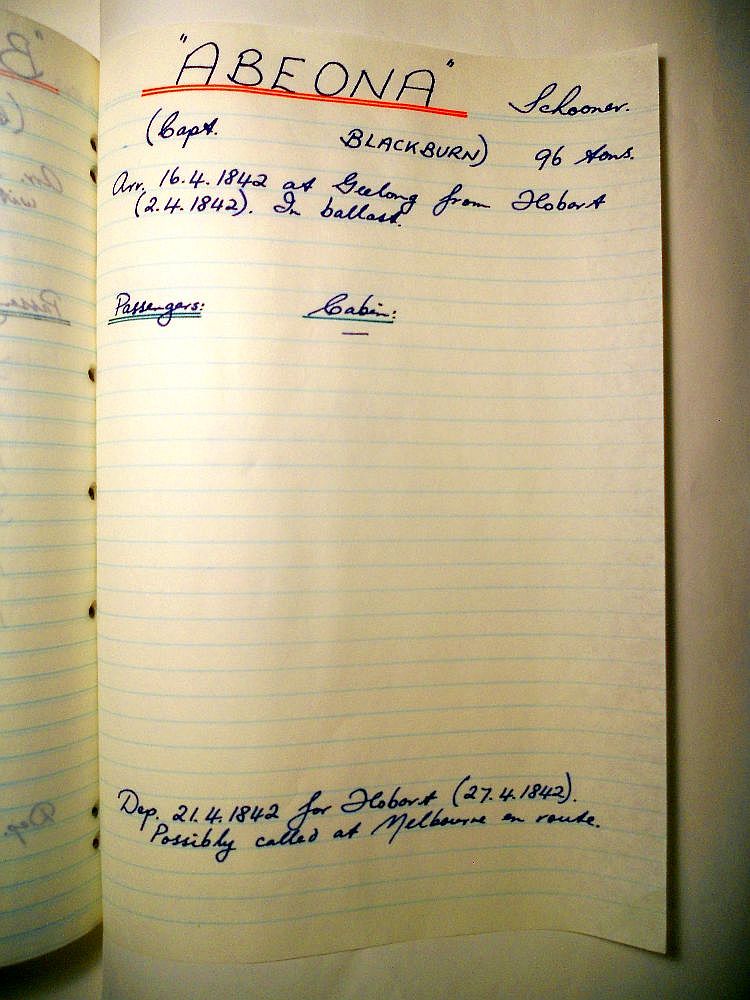 "ABEONA" Schooner.
(Capt. BLACKBURN) 96 tons.
Arr. 16.4.1842 at Geelong from Hobart
(2.4.1842). In ballast.
Passengers: Cabin:
—
Dep. 21.4.1842 for Hobart (27.4.1842).
Possibly called at Melbourne en route.